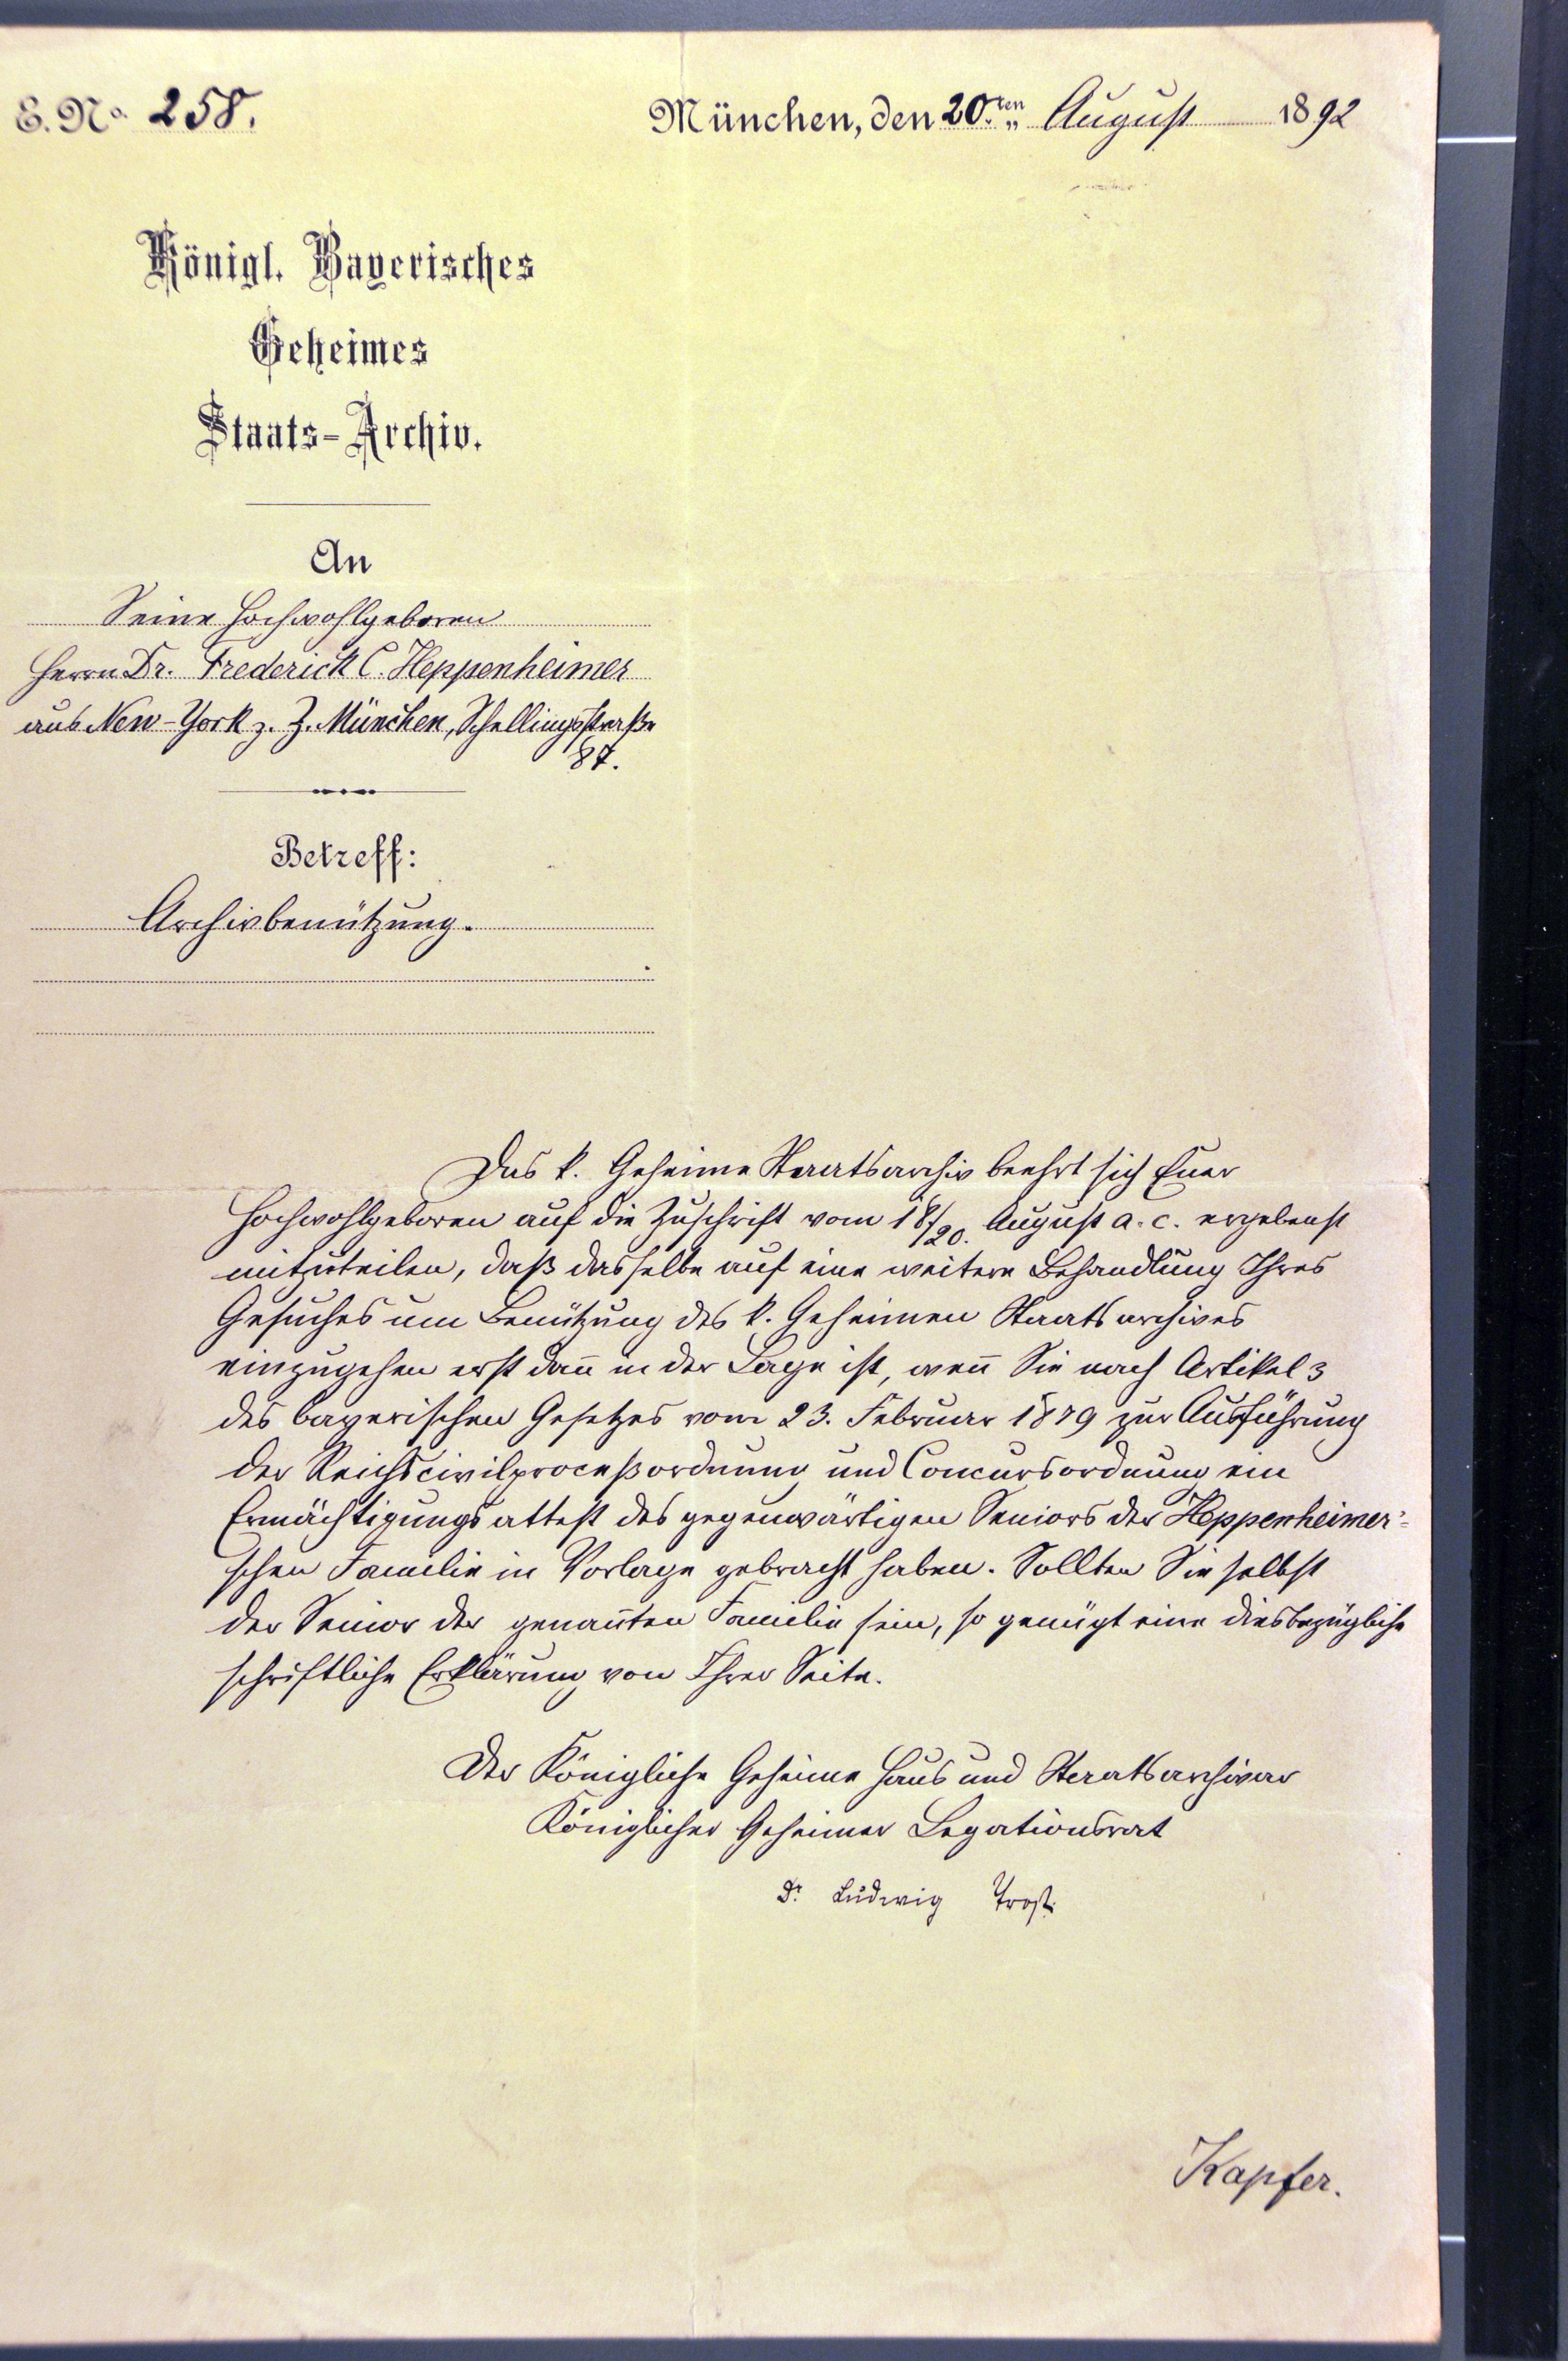 E. No. 258.
München, den 20.ten August 1892
Königl. Bayerisches
Geheimes
Staats-Archiv.
An
Seine Hochwohlgeboren
Herrn Dr. Frederick C. Heppenheimer
aus New-York z. Z. München, Schellingsstraße
87.
Betreff:
Archivbenützung.
Das k. Geheime Staatsarchiv beehrt sich Euer
Hochwohlgeboren auf die Zuschrift vom 18/20. August a. c. ergebenst
mitzuteilen, daß dasselbe auf eine weitere Behandlung Ihres
Gesuches um Benützung des k. Geheimen Staatsarchives
einzugehen erst dan̄ in der Lage ist, wen̄ Sie nach Artikel 3
des bayerischen Gesetzes vom 23. Februar 1879 zur Ausführung
der Reichscivilproceßordnung und Concursordnung ein
Ermächtigungsattest des gegenwärtigen Seniors der Heppenheimer'-
schen Familie in Vorlage gebracht haben. Sollten Sie selbst
der Senior der genan̄ten Familie sein, so genügt eine diesbezügliche
schriftliche Erklärung von Ihrer Seite.
Der Königliche Geheime Haus und Staatsarchivar
Königlicher Geheimer Legationsrat
Dr. Ludwig Trost.
Kapfer.